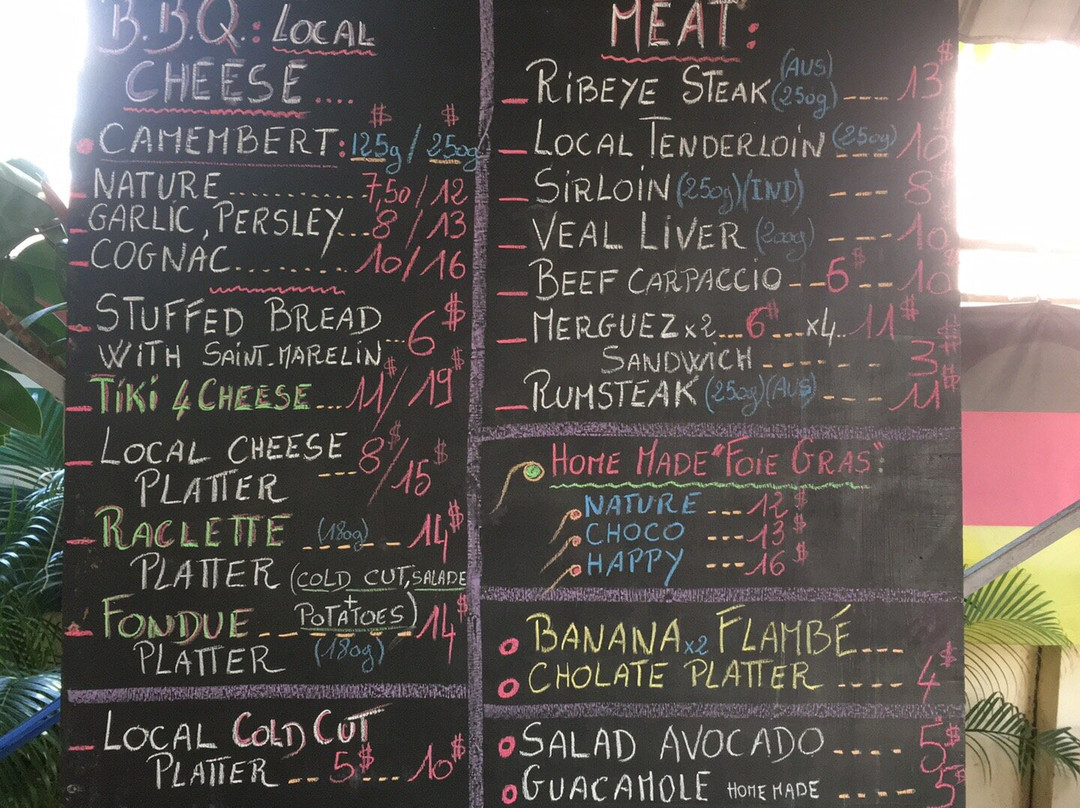 B.B.Q.: LOCAL
CHEESE....
$ $
CAMEMBERT: 125g / 250g
- NATURE............ 7,50 / 12
- GARLIC, PERSLEY... 8 / 13
- COGNAC........... 10 / 16
- STUFFED BREAD
WITH SAINT.MARELIN... 6$
- TIKI 4 CHEESE... 11$ / 19$
- LOCAL CHEESE
PLATTER --- 8$ / 15$
- RACLETTE (180g) --- 14$
PLATTER (COLD CUT, SALADE
+ POTATOES)
- FONDUE --- 14$
PLATTER (180g)
- LOCAL COLD CUT
PLATTER -- 5$ ... 10$
MEAT:
- RIBEYE STEAK (AUS) (250g) --- 13$
- LOCAL TENDERLOIN (250g) --- 10$
- SIRLOIN (250g) (IND) --- 8$
- VEAL LIVER (200g) --- 10$
- BEEF CARPACCIO -- 6$ -- 10$
- MERGUEZ x2... 6$ ... x4.. 11$
SANDWICH ---- 3$
- RUMSTEAK (250g) (AUS) --- 11$
HOME MADE "FOIE GRAS":
NATURE --- 12$
CHOCO --- 13$
HAPPY --- 16$
BANANA x2 FLAMBÉ---
CHOLATE PLATTER ---- 4$
SALAD AVOCADO ---- 5$
GUACAMOLE HOME MADE ---- 5$